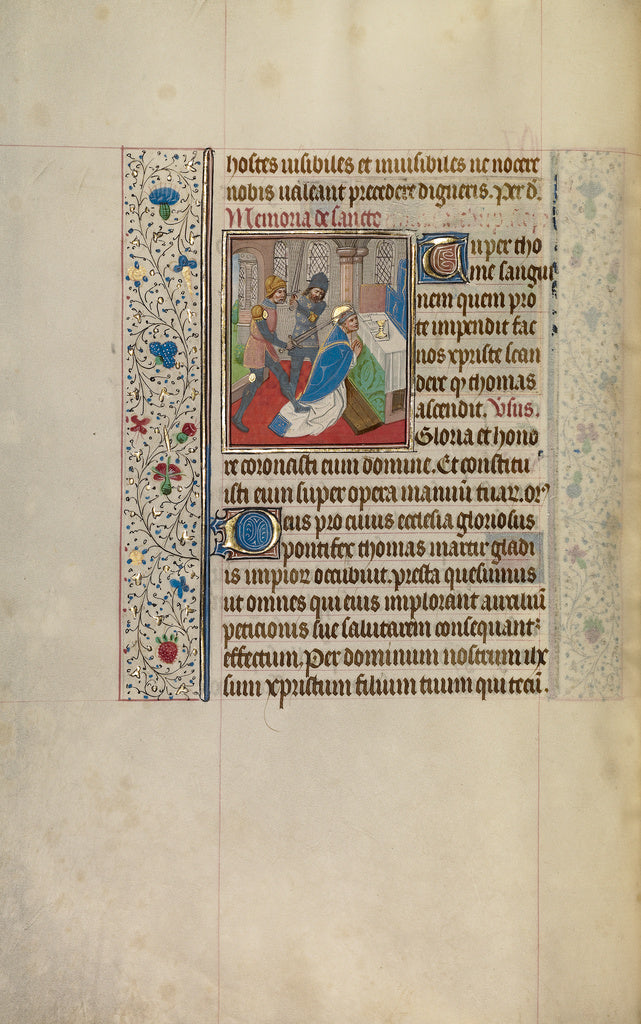 hostes uisibiles et inuisibiles ne nocere
nobis ualeant precedere digneris. Per d.
Memoria de sancto
Tu per tho
me sangui
nem quem pro
te impendit fac
nos xpriste scan
dere qͦ thomas
ascendit. Vsus.
Gloria et hono
re coronasti eum domine. Et constitu
isti eum super opera manuū tuaꝝ. orͦ
Deus pro cuius ecclesia gloriosus
pontifex thomas martir gladi
is impioꝝ occubuit. presta quesumus
ut omnes qui eius implorant auxiliū
peticionis sue salutarem consequantᷣ
effectum. Per dominum nostrum ihx
sum xpristum filium tuum qui tecū.